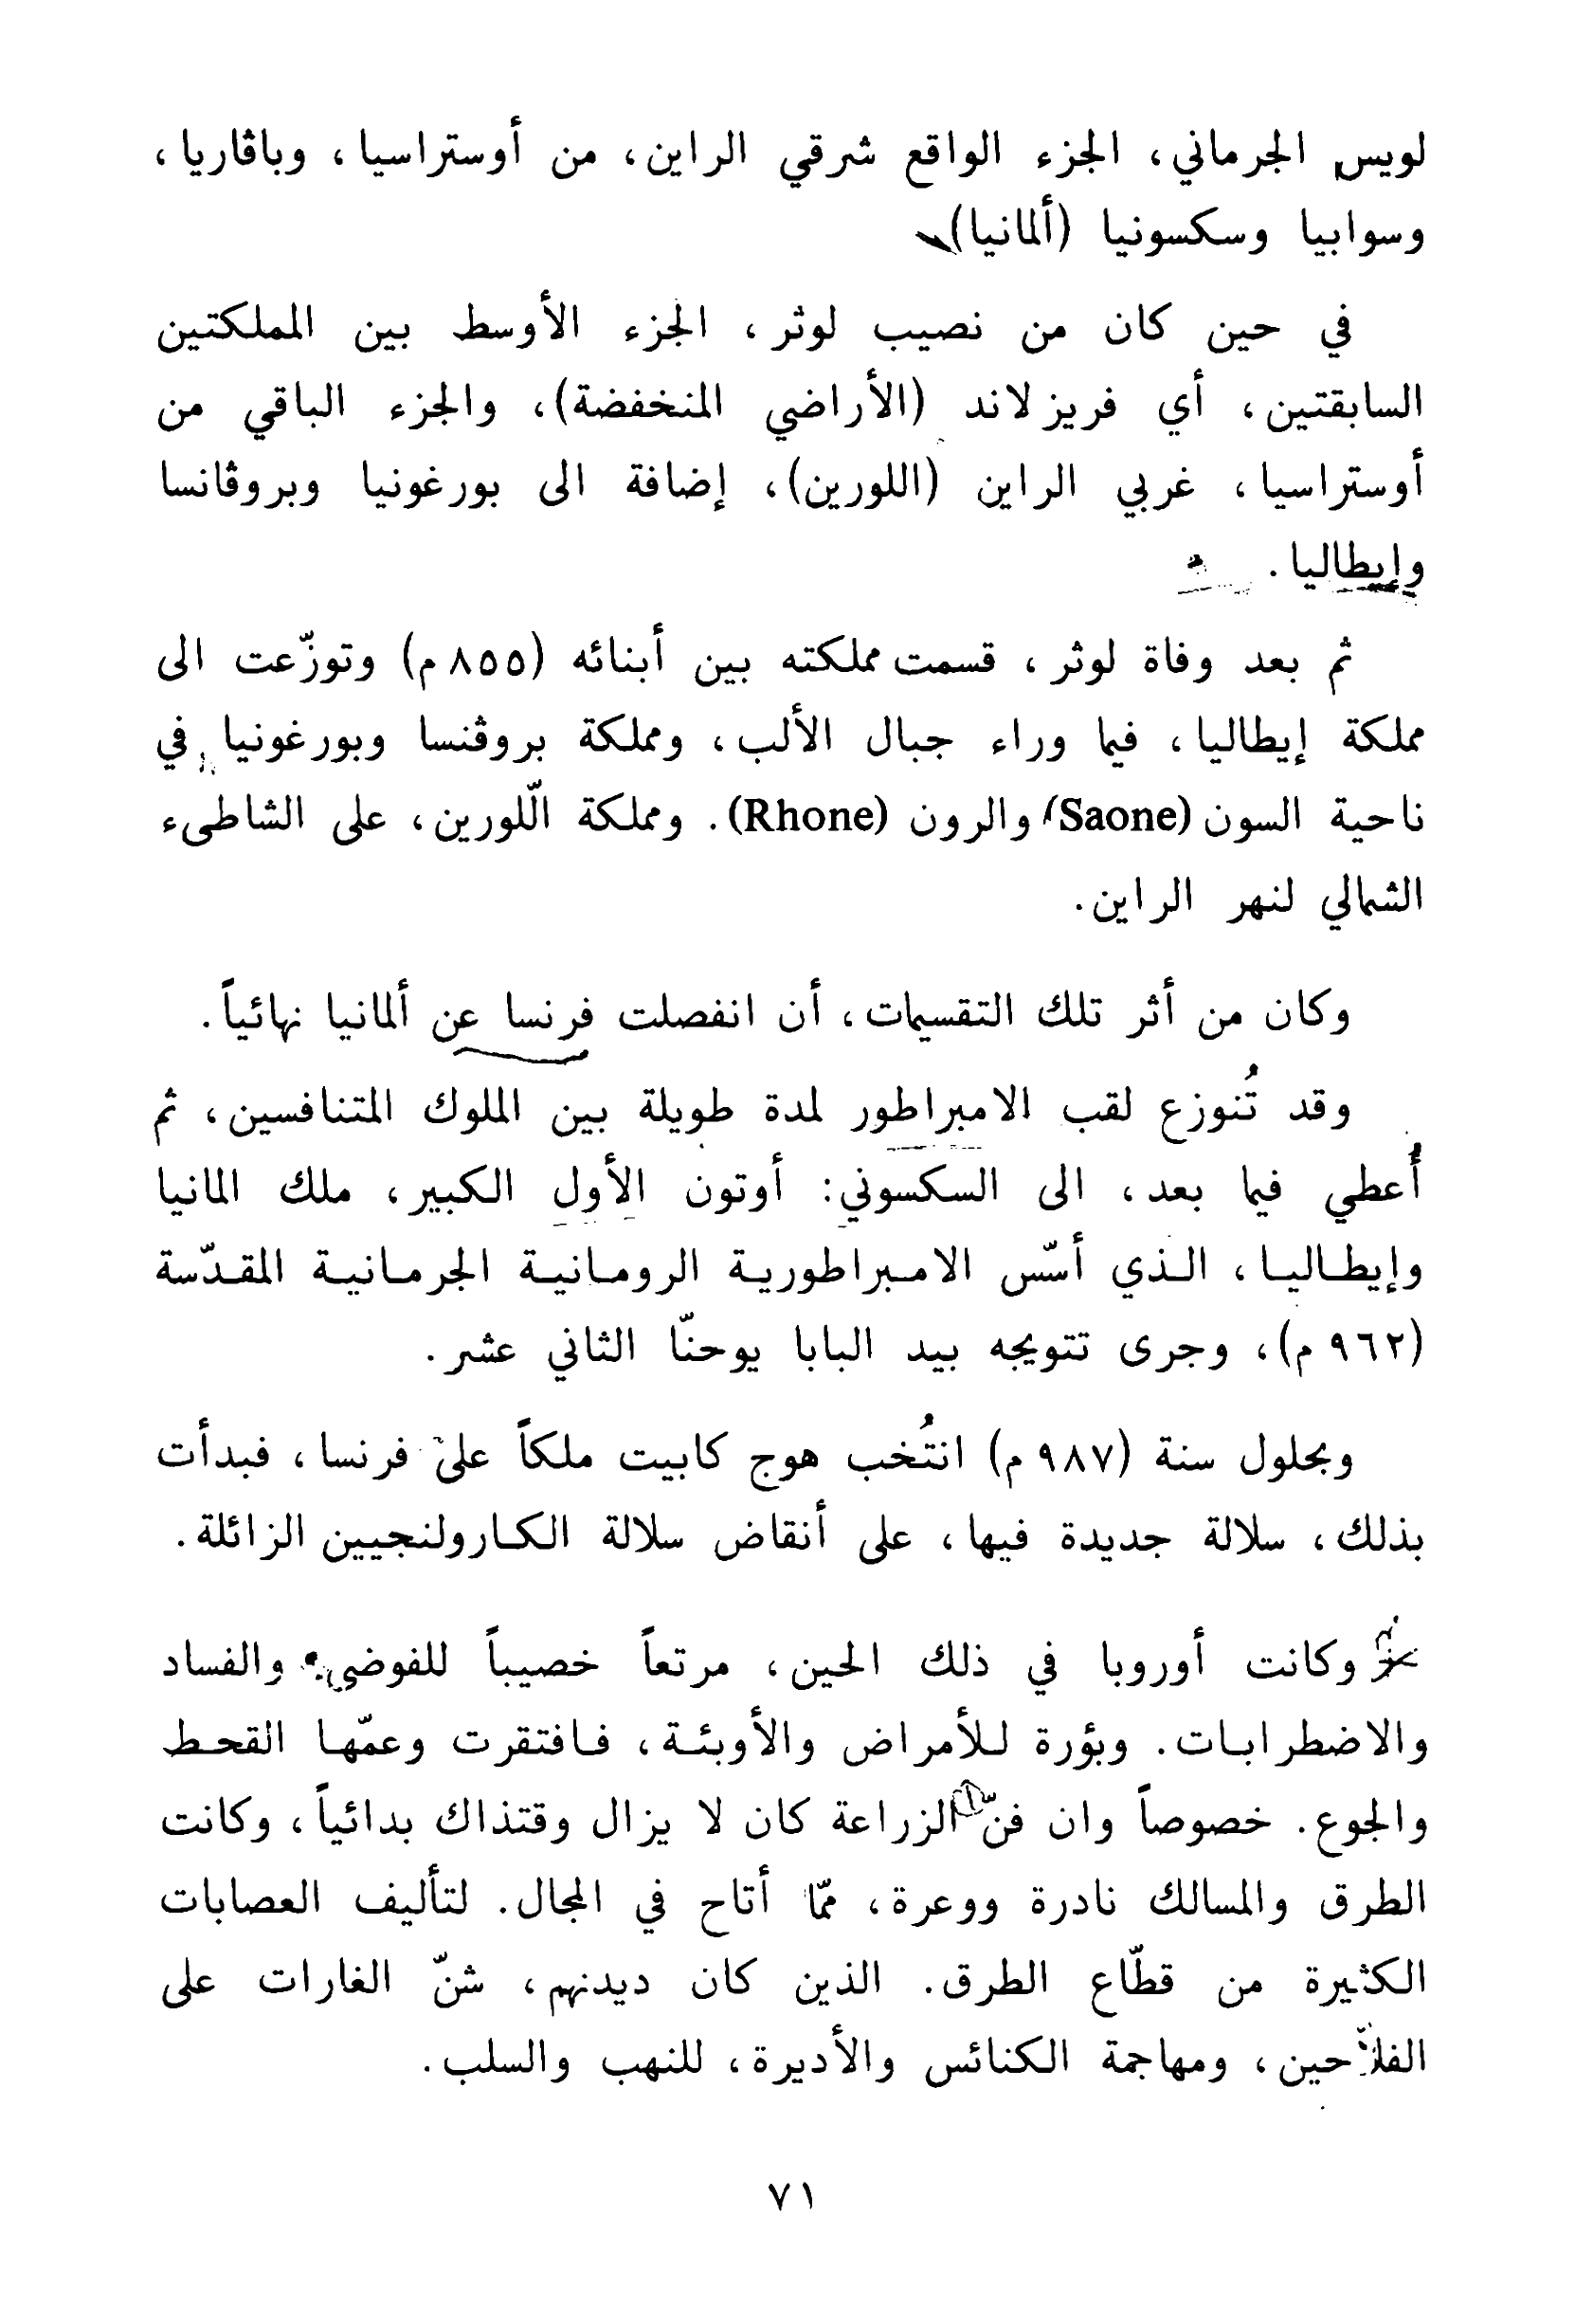 لويس الجرماني، الجزء الواقع شرقي الراين، من أوستراسيا، وباڤاريا،
وسوابيا وسكسونيا (ألمانيا)
في حين كان من نصيب لوثر، الجزء الأوسط بين المملكتين
السابقتين، أي فريزلاند (الأراضي المنخفضة)، والجزء الباقي من
أوستراسيا، غربي الراين (اللورين)، إضافة الى بورغونيا وبروڤانسا
وإيطاليا.
ثم بعد وفاة لوثر، قسمت مملكته بين أبنائه (٨٥٥ م) وتوزّعت الى
مملكة إيطاليا، فيما وراء جبال الألب، ومملكة بروڤنسا وبورغونيا في
ناحية السون (Saone) والرون (Rhone). ومملكة الّلورين، على الشاطىء
الشمالي لنهر الراين.
وكان من أثر تلك التقسيمات، أن انفصلت فرنسا عن ألمانيا نهائياً.
وقد تُنوزع لقب الامبراطور لمدة طويلة بين الملوك المتنافسين، ثم
أُعطي فيما بعد، الى السكسوني: أوتون الأول الكبير، ملك المانيا
وإيطاليا، الذي أسّس الامبراطورية الرومانية الجرمانية المقدّسة
(٩٦٢ م)، وجرى تتويجه بيد البابا يوحنّا الثاني عشر.
وبحلول سنة (٩٨٧ م) انتُخب هوج كابيت ملكاً على فرنسا، فبدأت
بذلك، سلالة جديدة فيها، على أنقاض سلالة الكارولنجيين الزائلة.
وكانت أوروبا في ذلك الحين، مرتعاً خصيباً للفوضى والفساد
والاضطرابات. وبؤرة للأمراض والأوبئة، فافتقرت وعمّها القحط
والجوع. خصوصاً وان فنّ الزراعة كان لا يزال وقتذاك بدائياً، وكانت
الطرق والمسالك نادرة ووعرة، ممّا أتاح في المجال. لتأليف العصابات
الكثيرة من قطّاع الطرق. الذين كان ديدنهم، شنّ الغارات على
الفلاّحين، ومهاجمة الكنائس والأديرة، للنهب والسلب.
٧١